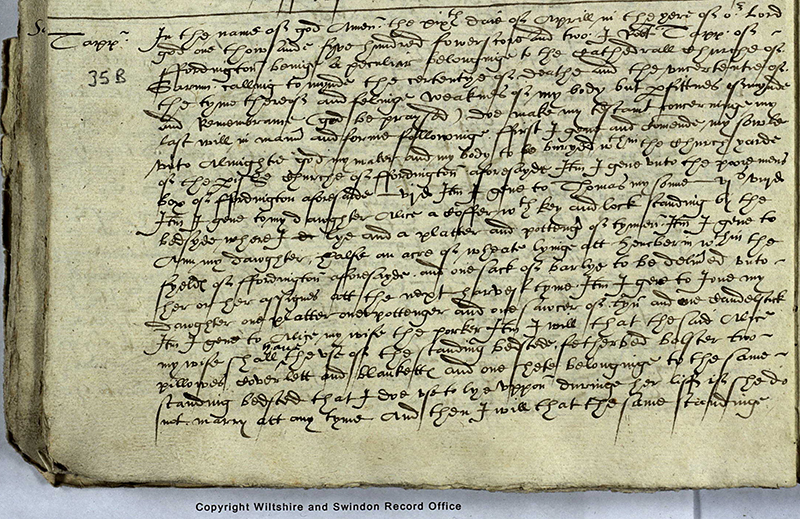 Tapp
35B
In the name of god Amen the sixth daie of Aprill in the yere of or Lord
god one thowsande fyve hundred fowerscore and two I Robt Tapp of
ffordington beinge a peculiar belonginge to the Cathedrall Churche of
Sarum calling to mynde the certentye of deathe and the uncertentie of
the tyme thereof and felinge weaknes of my body but pfittnes of mynde
and Remembrance (god be praysed) doe make my testamt concerninge my
last will in manr and forme followinge ffirst I geve and comende my sowle
unto Almightie god my maker and my body to be buryed wthin the Church yarde
of the pishe Churche of ffordington aforesayde Itm I geve unto the poore mens
box of ffordington aforesaide vjd Itm I geve to Thomas my sonne vjs viijd
Itm I geve to my daughter Alice a coffer wth key and lock standing by the
bedsyde where I do lye and a platter and pottenger of tymen Itm I geve to
Ann my daughter halfe an acre of wheate lyinge att wthin the
fyeld of ffordington aforesayde and one sack of barlye to be delived unto
her or her assignes att the next harvest tyme Itm I geve to Jone my
daughter one platter one pottenger and one sawcer of tyn and one candelstick
Itm I geve to Alice my wife the porker Itm I will that the said Alice
my wife shall have the use of the standing bedsted fetherbed bolster two
pillowes coverlett and blankett and one shete belonginge to the same
standing bedsted that I doe use to lye uppon duringe her life if she do
not marry att any tyme And then I will that the same standinge
Copyright Wiltshire and Swindon Record Office